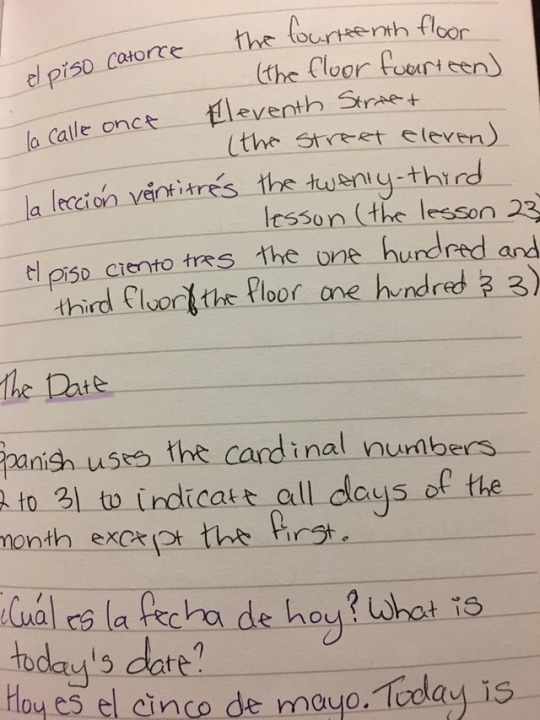 el piso catorce the fourteenth floor
(the floor fourteen)
la calle once Eleventh Street
(the street eleven)
la lección veintitrés the twenty-third
lesson (the lesson 23)
el piso ciento tres the one hundred and
third floor (the floor one hundred & 3)
The Date
Spanish uses the cardinal numbers
2 to 31 to indicate all days of the
month except the first.
¿Cuál es la fecha de hoy? What is
today's date?
Hoy es el cinco de mayo. Today is